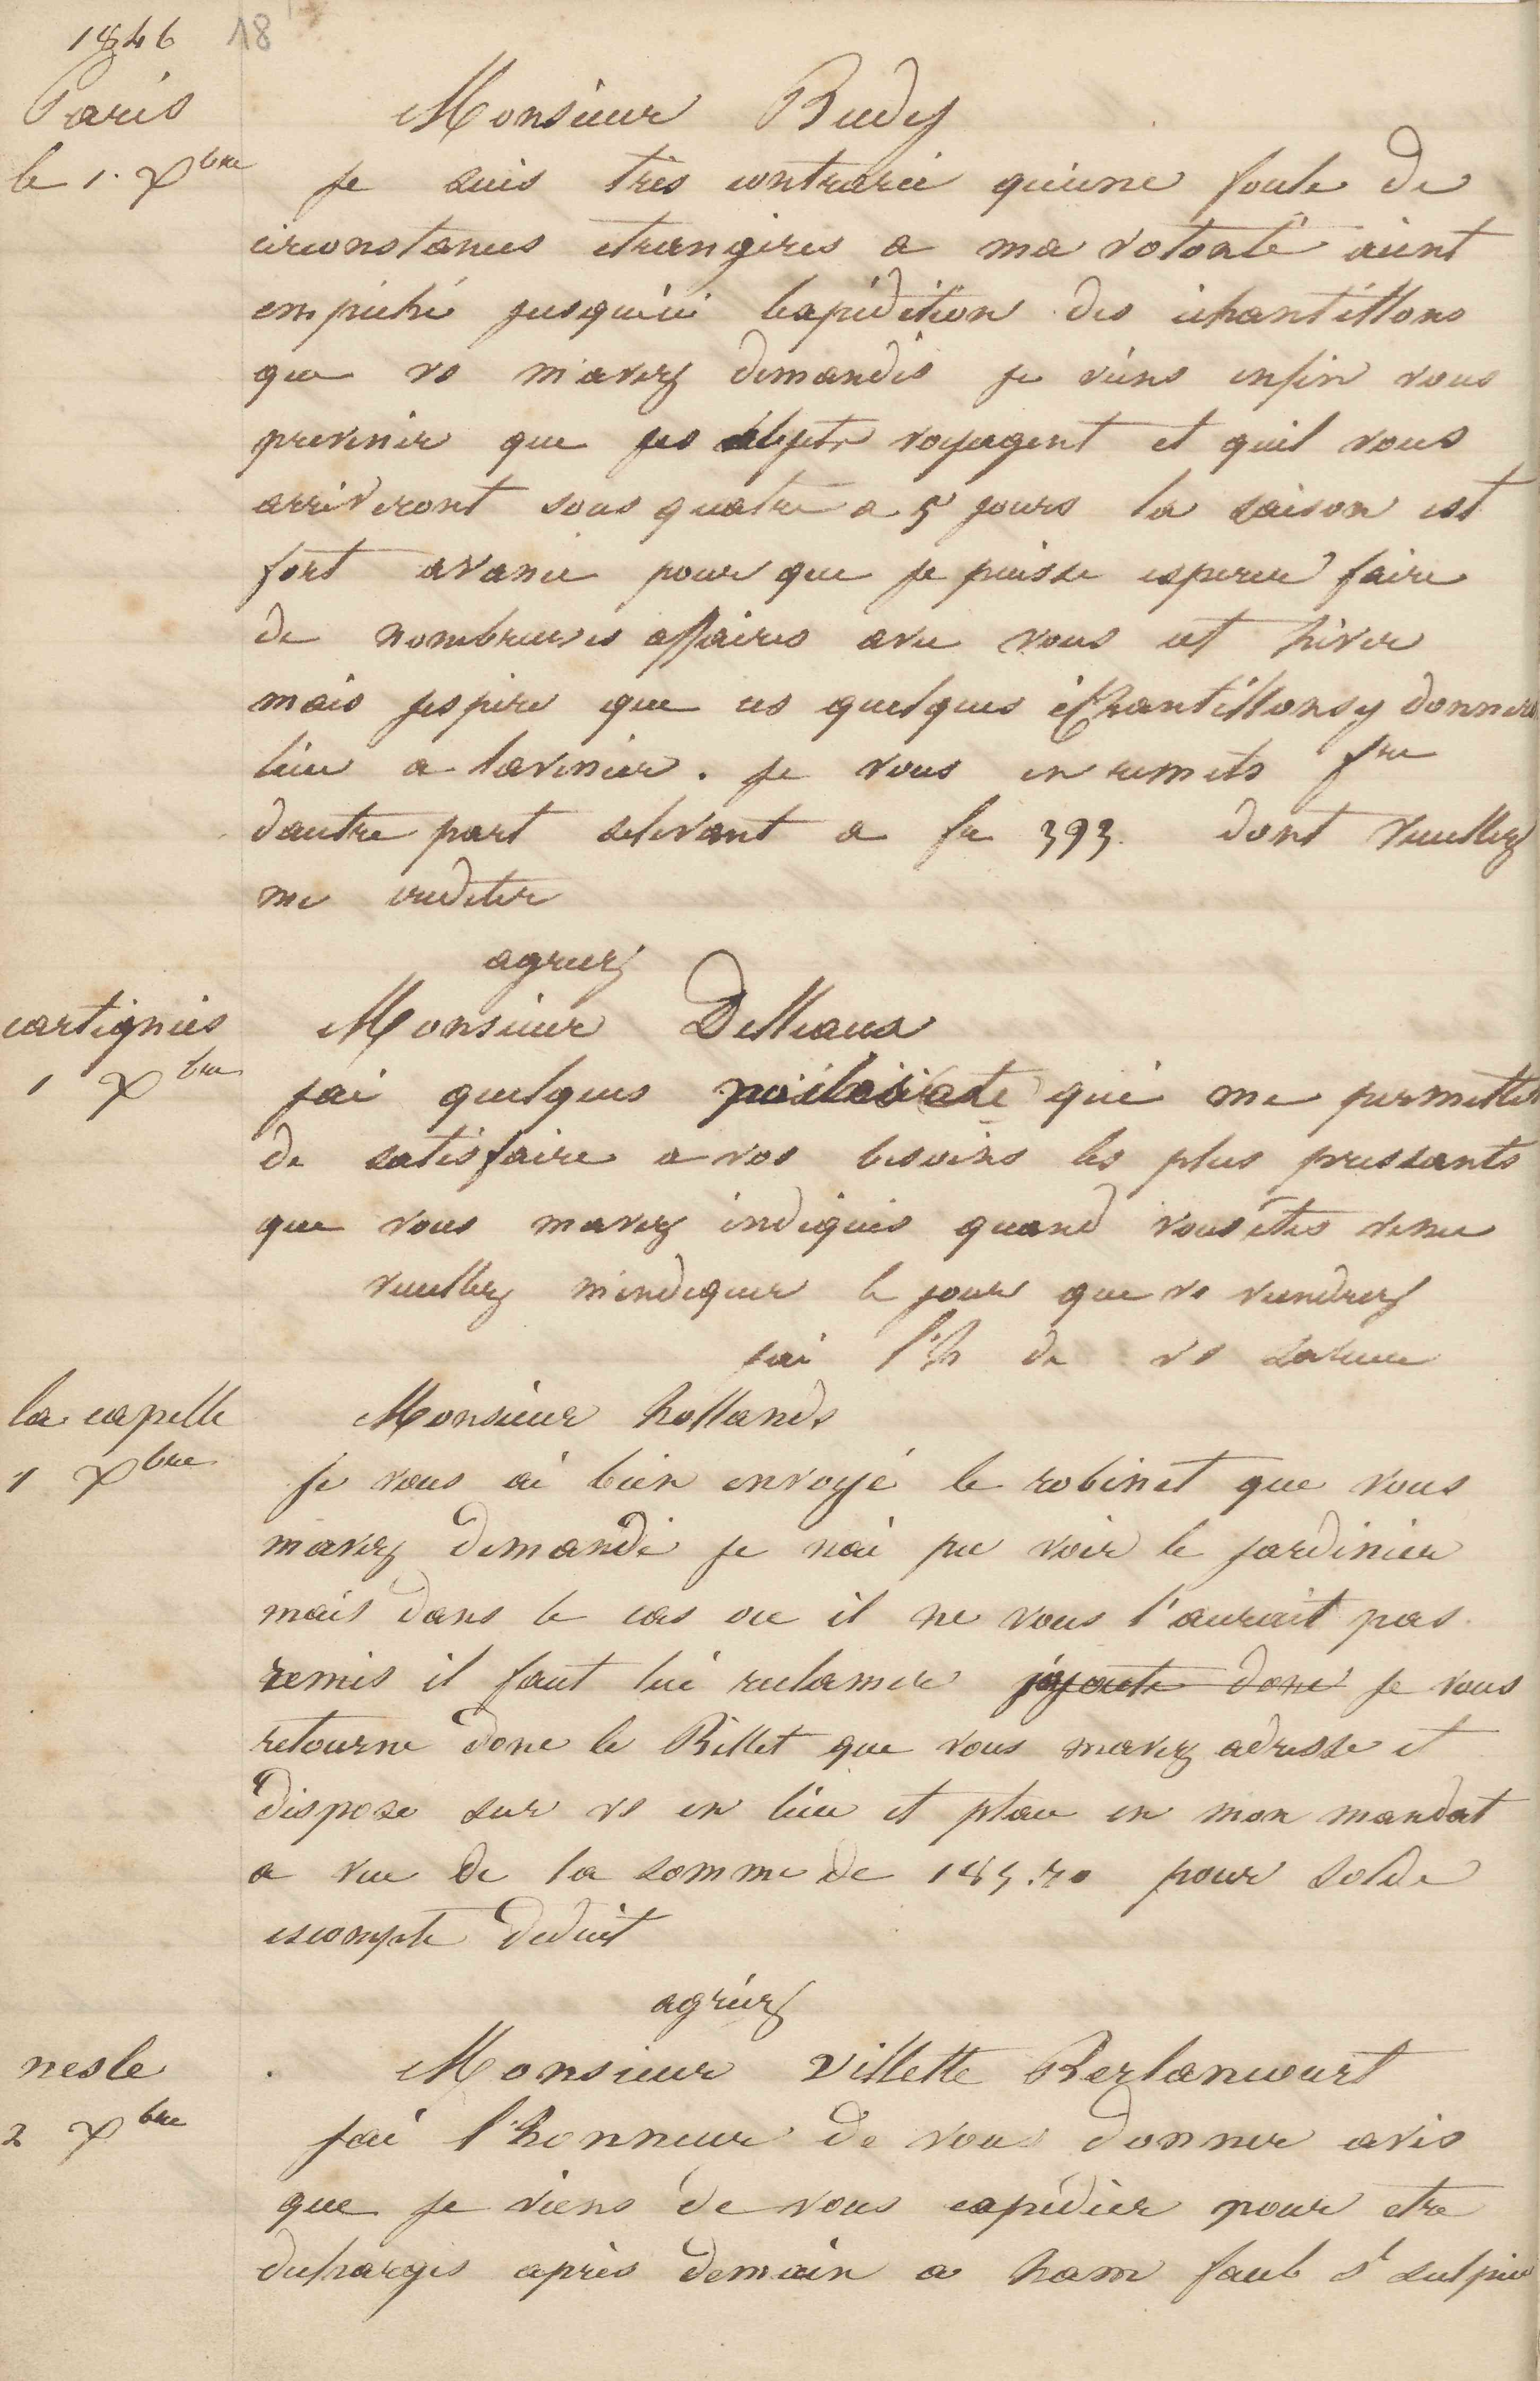 1846 18
Paris
le 1. Xbre
Monsieur Budy
je suis très contrarié qu'une foule de
circonstances etrangères a ma volonté aient
empéché jusqu'ici lexpédition des échantillons
que vs m'avez demandés je viens enfin vous
prevenir que ces objets voyagent et quil vous
arriveront sous quatre a 5 jours la saison est
fort avancé pour que je puisse esperer faire
de nombreuses affaires avec vous cet hiver
mais jespère que ces quelques échantillons y donnera
lieu a lavenir. je vous en remets fre
dautre part selevant a fr 393. dont veuillez
me crediter
agreez
cartignies
1 Xbre
Monsieur Delleaux
jai quelques qui me permettent
de satisfaire a vos besoins les plus pressants
que vous mavez indiqués quand vous étes venu
veuillez mindiquer le jour que vs viendrez
jai l'h de vs saluer
la capelle
1 Xbre
Monsieur hollande
je vous ai bien envoyé le robinet que vous
mavez demandé je nai pu voir le jardinier
mais dans le cas ou il ne vous l'aurait pas
remis il faut lui reclamer j'ajoute donc je vous
retourne donc le Billet que vous mavez adressé et
dispose sur vs en lieu et place en mon mandat
a vue de la somme de 185.70 pour solde
escompte deduit
agréez
nesle
2 Xbre
Monsieur Villette Berlancourt
jai l'honneur de vous donner avis
que je viens de vous expédier pour etre
dechargés après demain a ham faub St sulpice